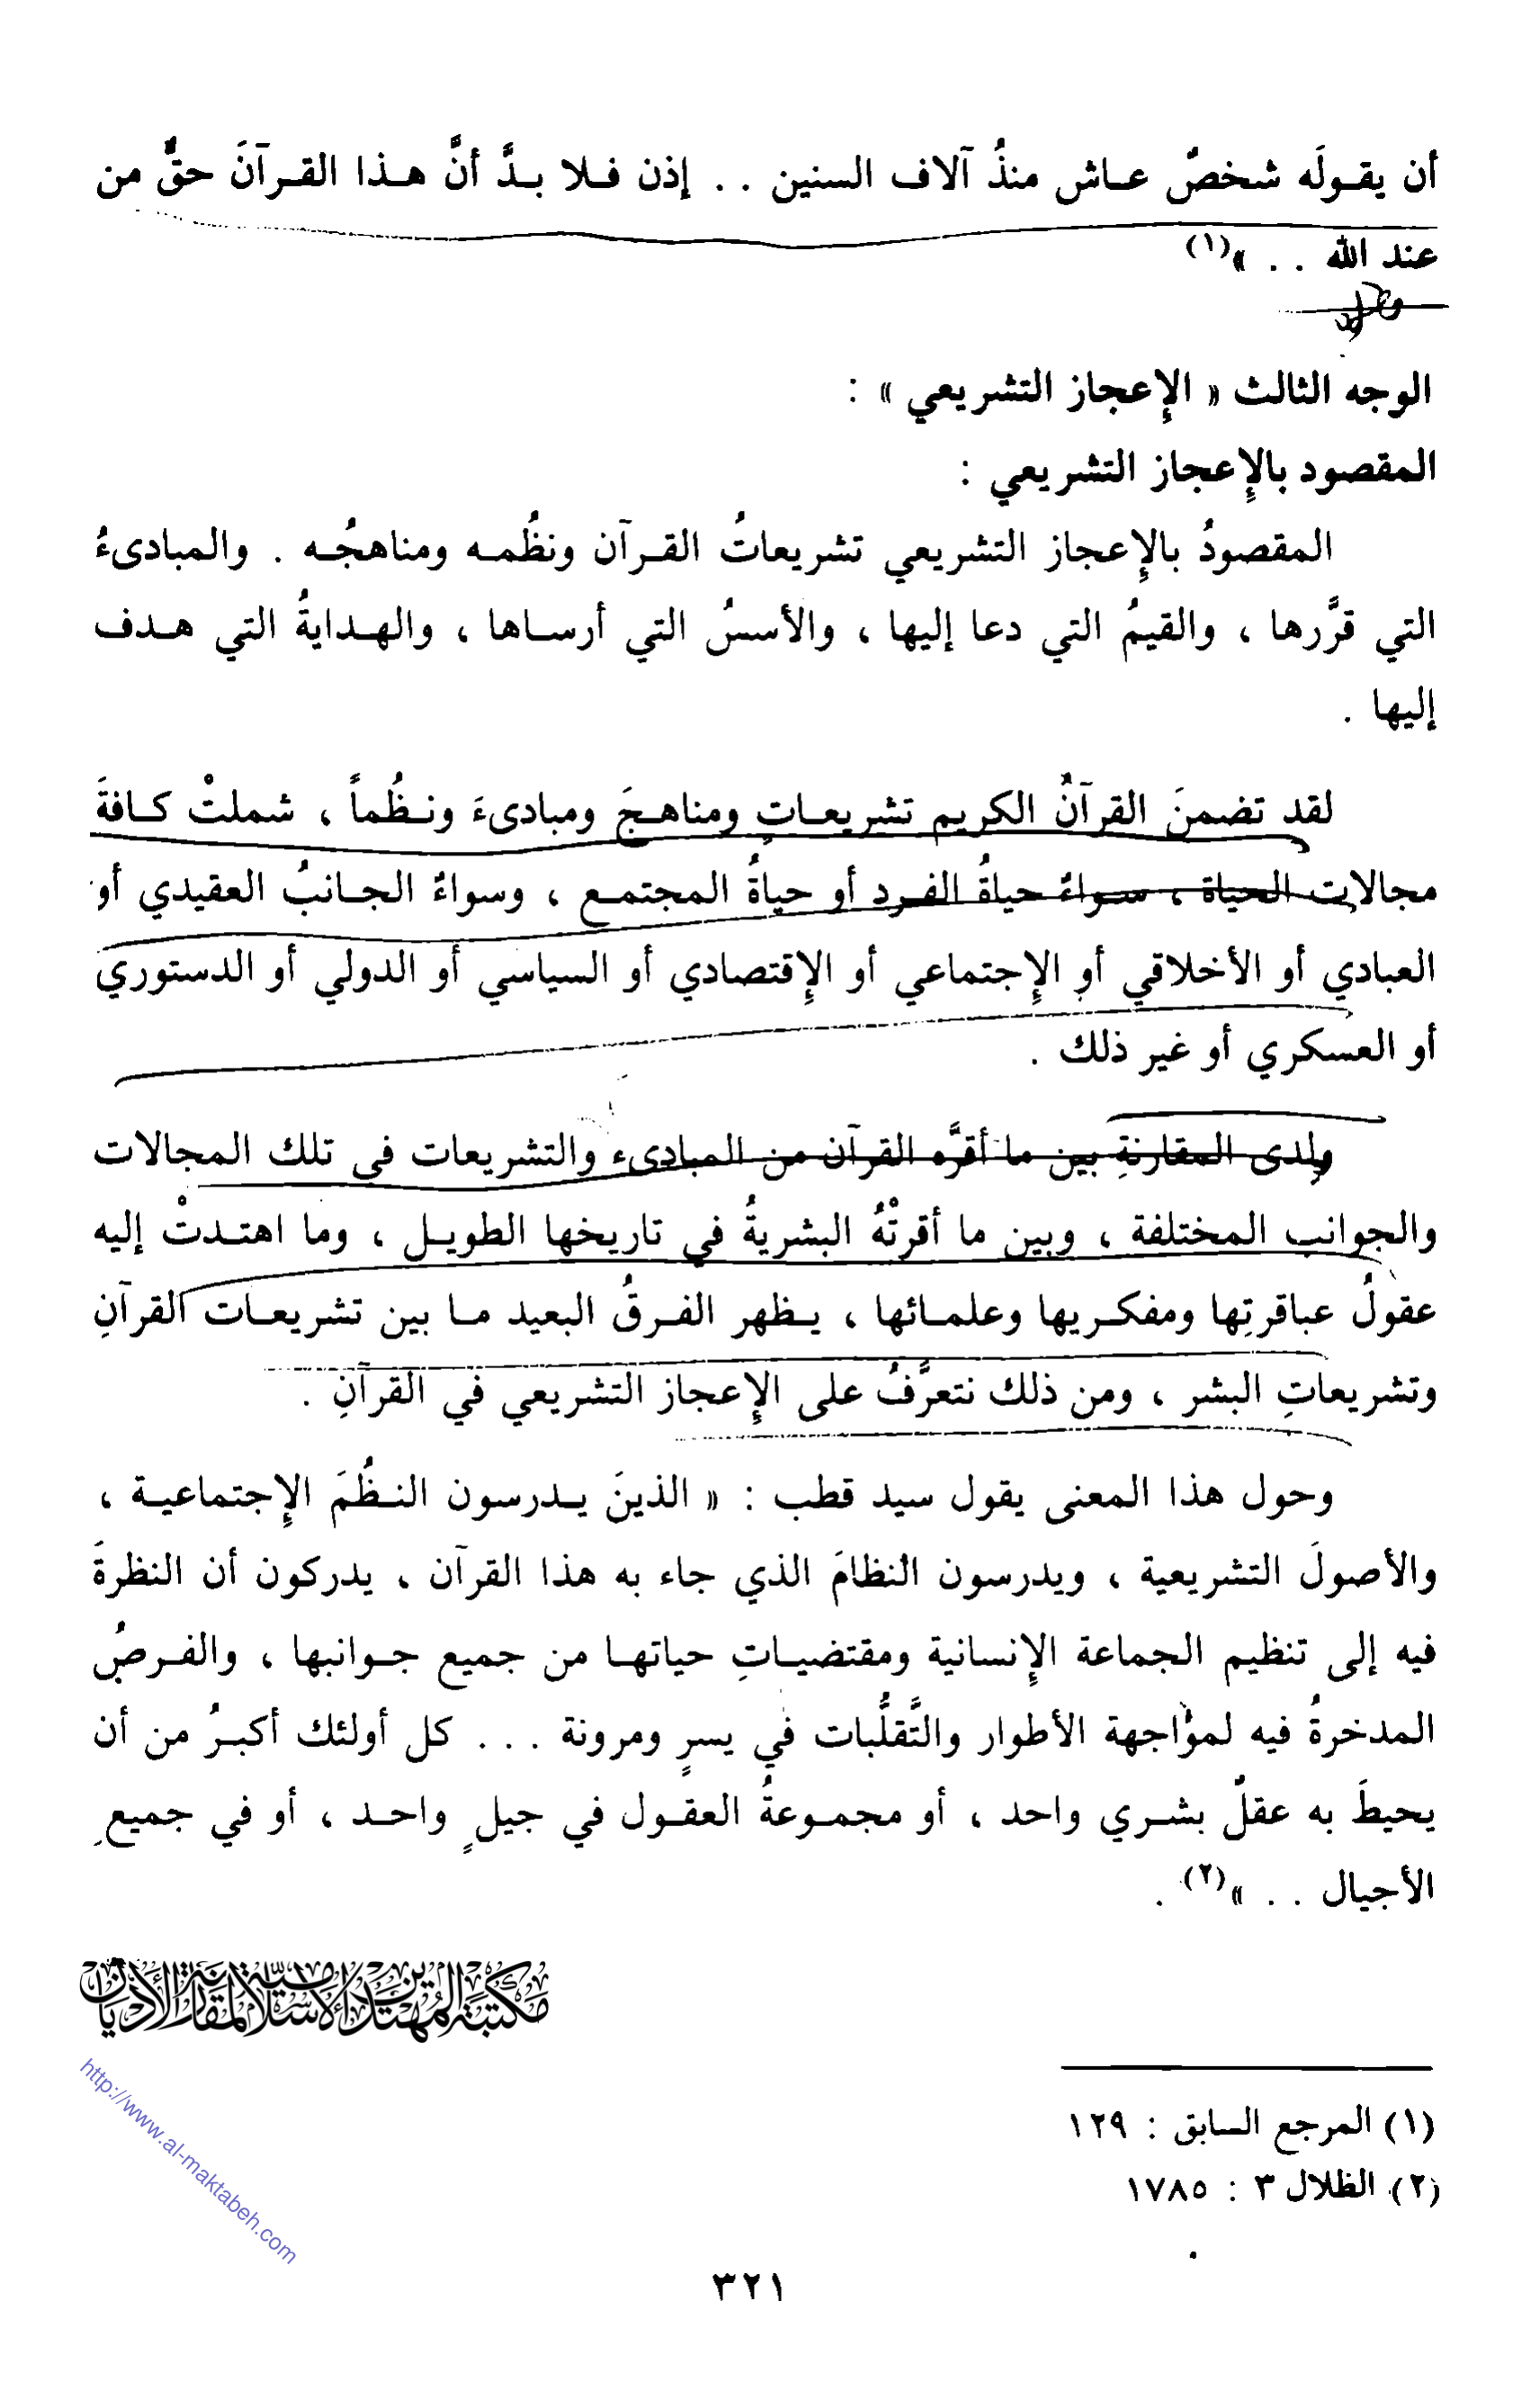 أن يقـولَه شخصٌ عـاش منذُ آلاف السنين . . إذن فـلا بـدَّ أنَّ هـذا القـرآنَ حقٌّ من
عند الله . . »(١)
الوجه الثالث « الإِعجاز التشريعي » :
المقصود بالإِعجاز التشريعي :
المقصودُ بالإِعجاز التشريعي تشريعاتُ القـرآن ونظُمـه ومناهجُـه . والمبادىءُ
التي قرَّرها ، والقيمُ التي دعا إليها ، والأسسُ التي أرسـاها ، والهـدايةُ التي هـدف
إليها .
لقد تضمنَ القرآنُ الكريم تشريعـاتٍ ومناهـجَ ومبادىءَ ونـظُماً ، شملتْ كـافةَ
مجالات الحياة ، سـواءٌ حياةُ الفـرد أو حياةُ المجتمـع ، وسواءٌ الجـانبُ العقيدي أو
العبادي أو الأخلاقي أو الإِجتماعي أو الإِقتصادي أو السياسي أو الدولي أو الدستوري
أو العسكري أو غير ذلك .
ولدى المقارنةِ بين ما أقرَّه القرآن من المبادىء والتشريعات في تلك المجالات
والجوانب المختلفة ، وبين ما أقرتْهُ البشريةُ في تاريخها الطويـل ، وما اهتـدتْ إليه
عقولُ عباقرتِها ومفكـريها وعلمـائها ، يـظهر الفـرقُ البعيد مـا بين تشريعـات القرآنِ
وتشريعاتِ البشر ، ومن ذلك نتعرَّفُ على الإِعجاز التشريعي في القرآنِ .
وحول هذا المعنى يقول سيد قطب : « الذينَ يـدرسون النـظُمَ الإِجتماعيـة ،
والأصولَ التشريعية ، ويدرسون النظامَ الذي جاء به هذا القرآن ، يدركون أن النظرةَ
فيه إلى تنظيم الجماعة الإِنسانية ومقتضيـاتِ حياتهـا من جميع جـوانبها ، والفـرصُ
المدخرةُ فيه لمؤاجهة الأطوار والتَّقلُّبات في يسرٍ ومرونة . . . كل أولئك أكبـرُ من أن
يحيطَ به عقلٌ بشـري واحد ، أو مجمـوعةُ العقـول في جيلٍ واحـد ، أو في جميعِ
الأجيال . . »(٢) .
مكتبة المهتدين الإسلامية لمقارنة الأديان
http://www.al-maktabeh.com
(١) المرجع السابق : ١٢٩
(٢) الظلال ٣ : ١٧٨٥
٣٢١